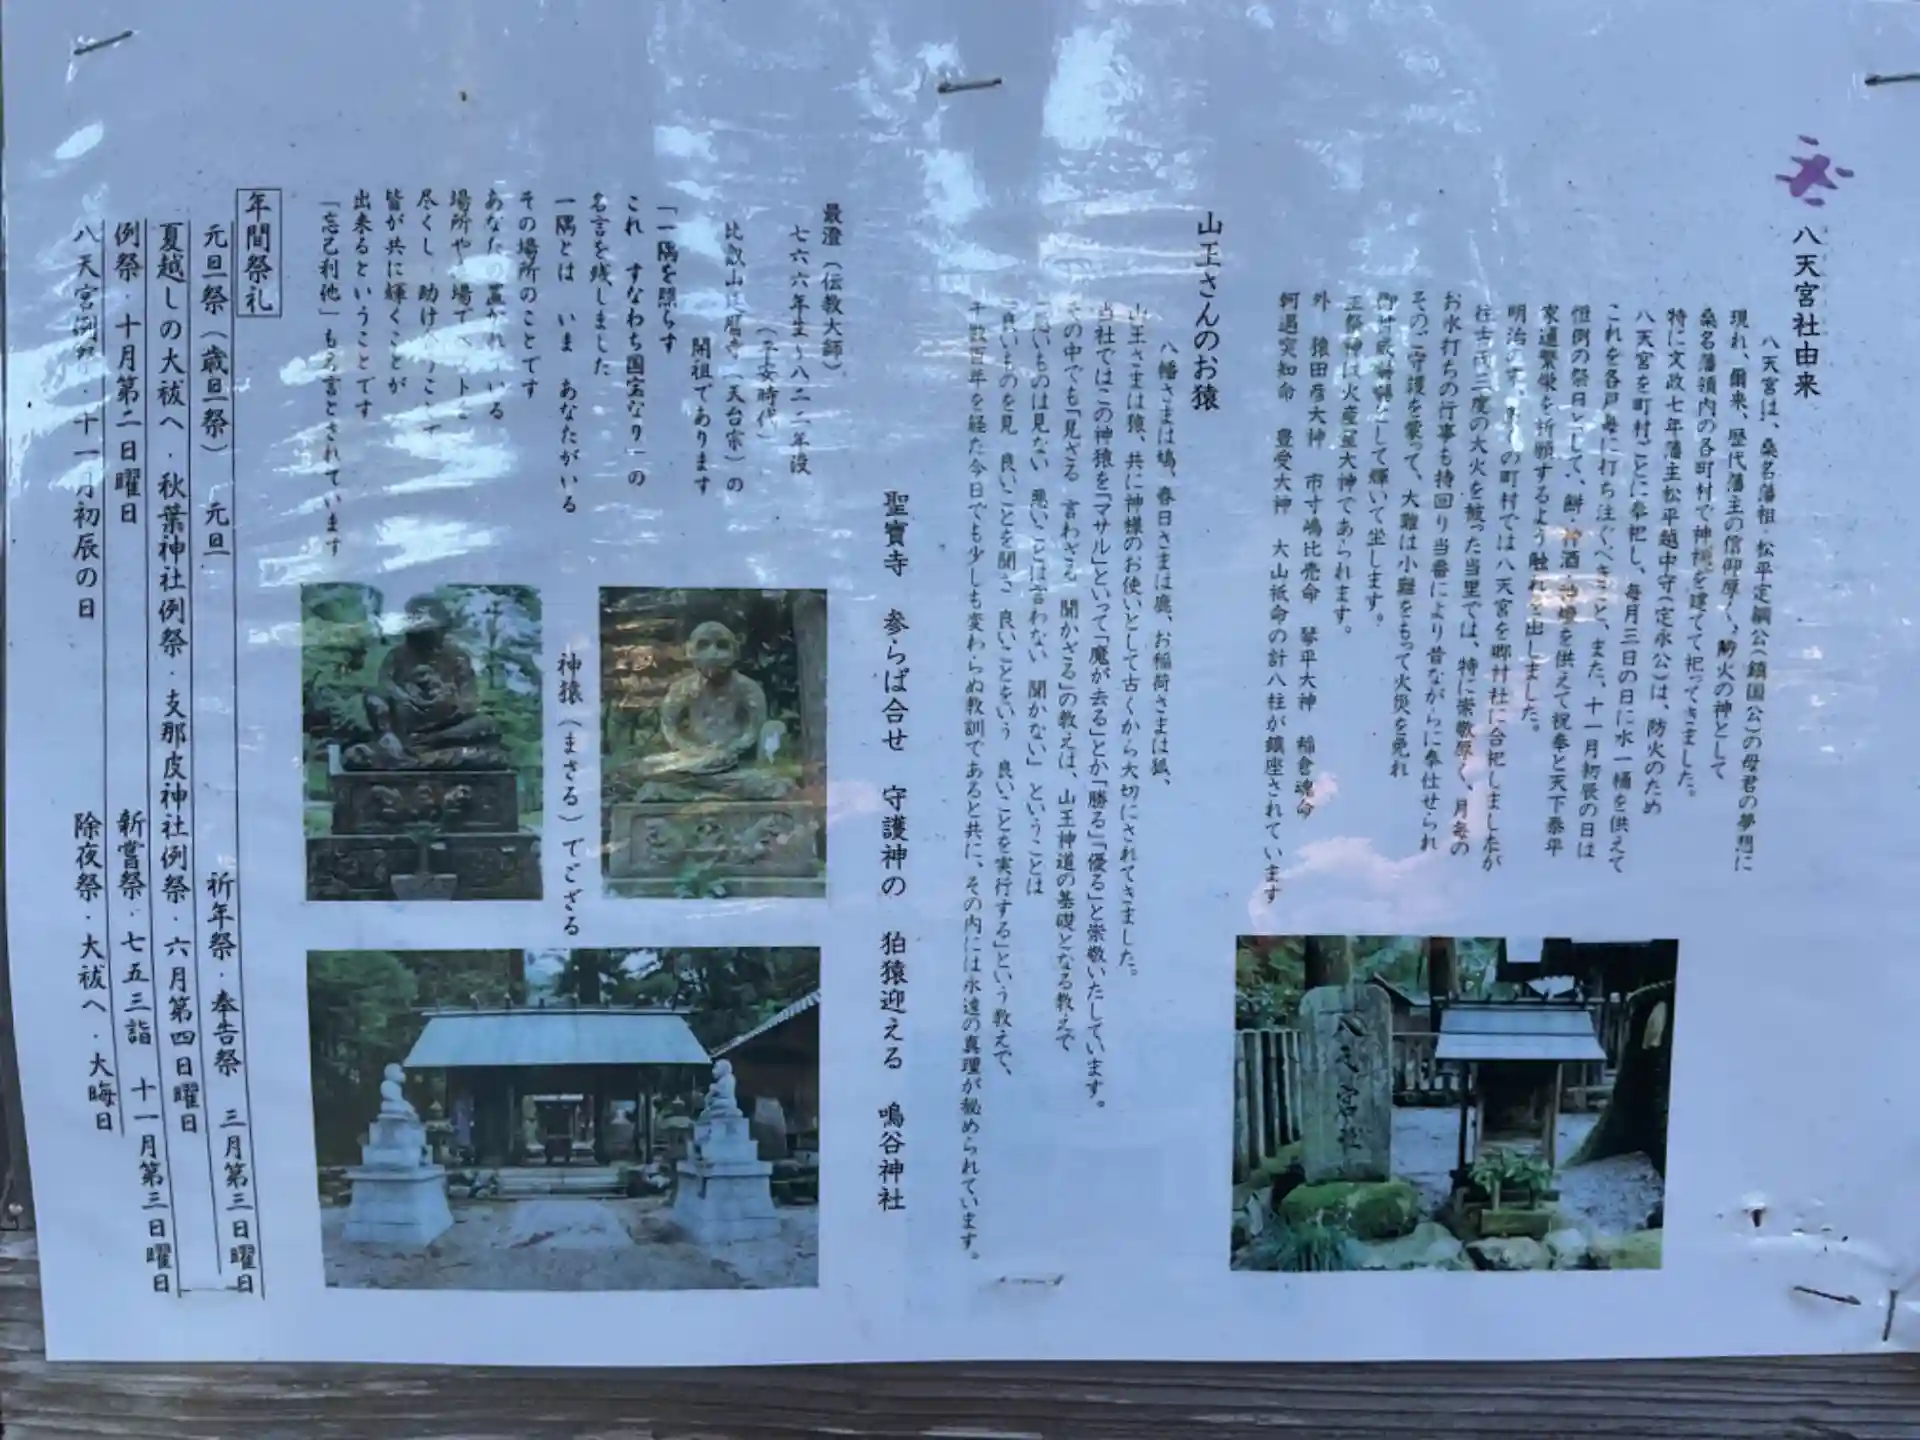 八天宮社由来
八天宮は、桑名藩祖・松平定綱公(鎮国公)の母君の夢想に
現れ、爾来、歴代藩主の信仰厚く、防火の神として
桑名藩領内の各町村で神祠を建てて祀ってきました。
特に文政七年藩主松平越中守(定永公)は、防火のため
八天宮を町村ごとに奉祀し、毎月三日の日に水一桶を供えて
これを各戸毎に打ち注ぐべきこと、また、十一月初辰の日は
恒例の祭日として、餅・神酒・神燈を供えて祝奉と天下泰平
家運繁栄を祈願するよう触れを出しました。
明治の 多くの町村では八天宮を郷村社に合祀しましたが
往古代三度の大火を被った当里では、特に崇敬厚く、月毎の
お水打ちの行事も持回り当番により昔ながらに奉仕せられ
そのご守護を蒙って、大難は小難をもって火災を免れ
として輝いて坐します。
主祭神は火産霊大神であられます。
外 猿田彦大神 市寸嶋比売命 琴平大神 稲倉魂命
軻遇突知命 豊受大神 大山祇命の計八柱が鎮座されています
山王さんのお猿
八幡さまは鳩、春日さまは鹿、お稲荷さまは狐、
山王さまは猿、共に神様のお使いとして古くから大切にされてきました。
当社ではこの神猿を「マサル」といって「魔が去る」とか「勝る」「優る」と崇敬いたしています。
その中でも「見ざる 言わざる 聞かざる」の教えは、山王神道の基礎となる教えで
悪いものは見ない 悪いことは言わない 聞かない」ということは
「良いものを見 良いことを聞き 良いことをいう 良いことを実行する」という教えで、
千数百年を経た今日でも少しも変わらぬ教訓であると共に、その内には永遠の真理が秘められています。
聖寶寺 参らば合せ 守護神の 狛猿迎える 鳴谷神社
最澄(伝教大師)
七六六年生〜八二二年没
(平安時代)
比叡山延暦寺(天台宗)の
開祖であります
「一隅を照らす
これ すなわち国宝なり」の
名言を残しました
一隅とは いま あなたがいる
その場所のことです
あなたの置かれている
場所や 場で
尽くし 助け
皆が共に輝くことが
出来るということです
「忘己利他」も名言とされています
神猿(まさる)でござる
八天宮社
年間祭礼
元旦祭(歳旦祭) 元旦 祈年祭・奉告祭 三月第三日曜日
夏越しの大祓へ・秋葉神社例祭・支那皮神社例祭・六月第四日曜日
例祭・十月第二日曜日 新嘗祭・七五三詣 十一月第三日曜日
八天宮例祭・十一月初辰の日 除夜祭・大祓へ・大晦日